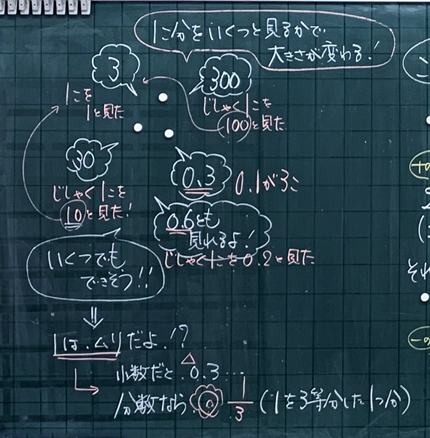 1こ分をいくつと見るかで、
大きさが変わる!
3
1こを
1と見た
300
じしゃく1こを
100と見た
30
じしゃく1こを
10と見た!
0.3
0.1が3こ
0.6とも
見れるよ!
じしゃく1こを0.2と見た
いくつでも
できそう!!
⇓
1は、ムリだよ!?
小数だと 0.3…
分数なら 1/3 (1を3等分した1つ分)
こ